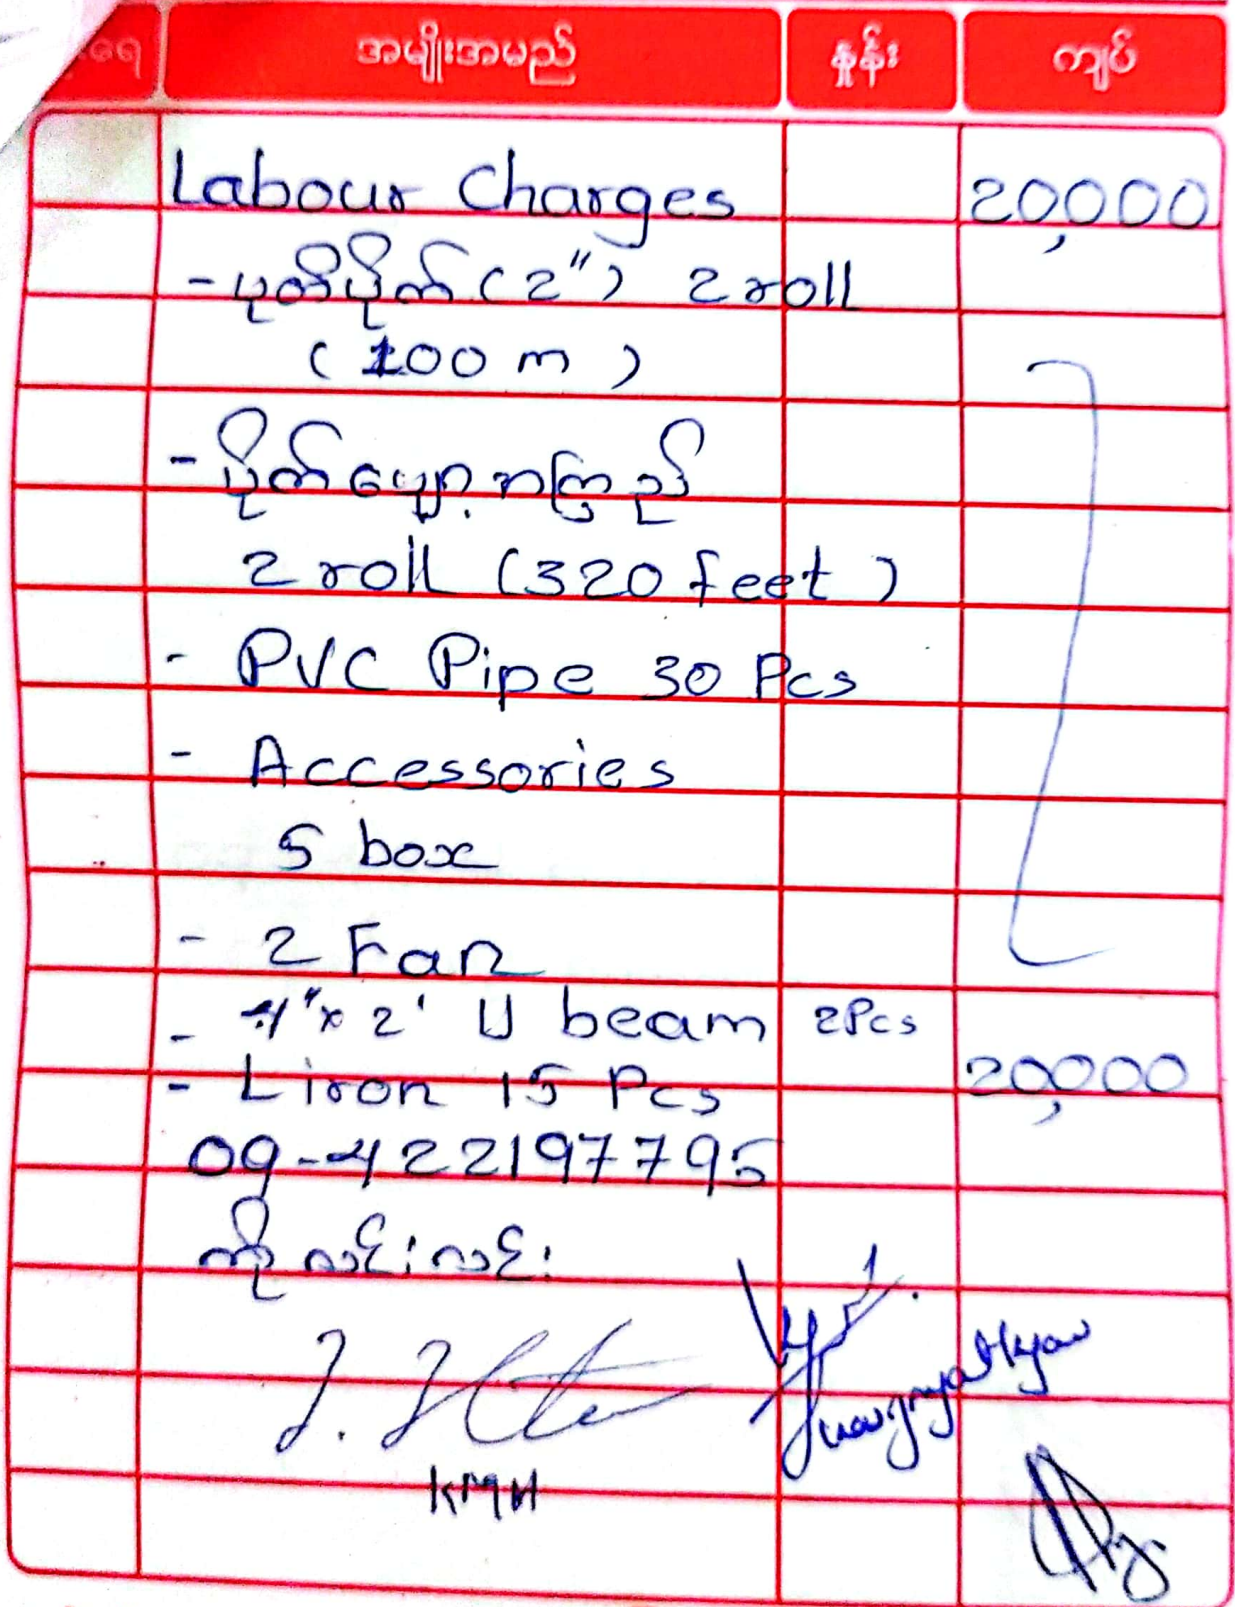 အမျိုးအမည် နှုန်း ကျပ်
Labour Charges 20,000
- ပုတီပိုက် (2") 2 roll
(100 m)
- ပိုက်ပျော့အကြည်
2 roll (320 feet)
- PVC Pipe 30 Pcs
- Accessories
5 box
- 2 Fan
- 4"x 2' U beam 2Pcs
- Liron 15 Pcs 20,000
09-422197795
ကိုလင်းလင်း
KMH